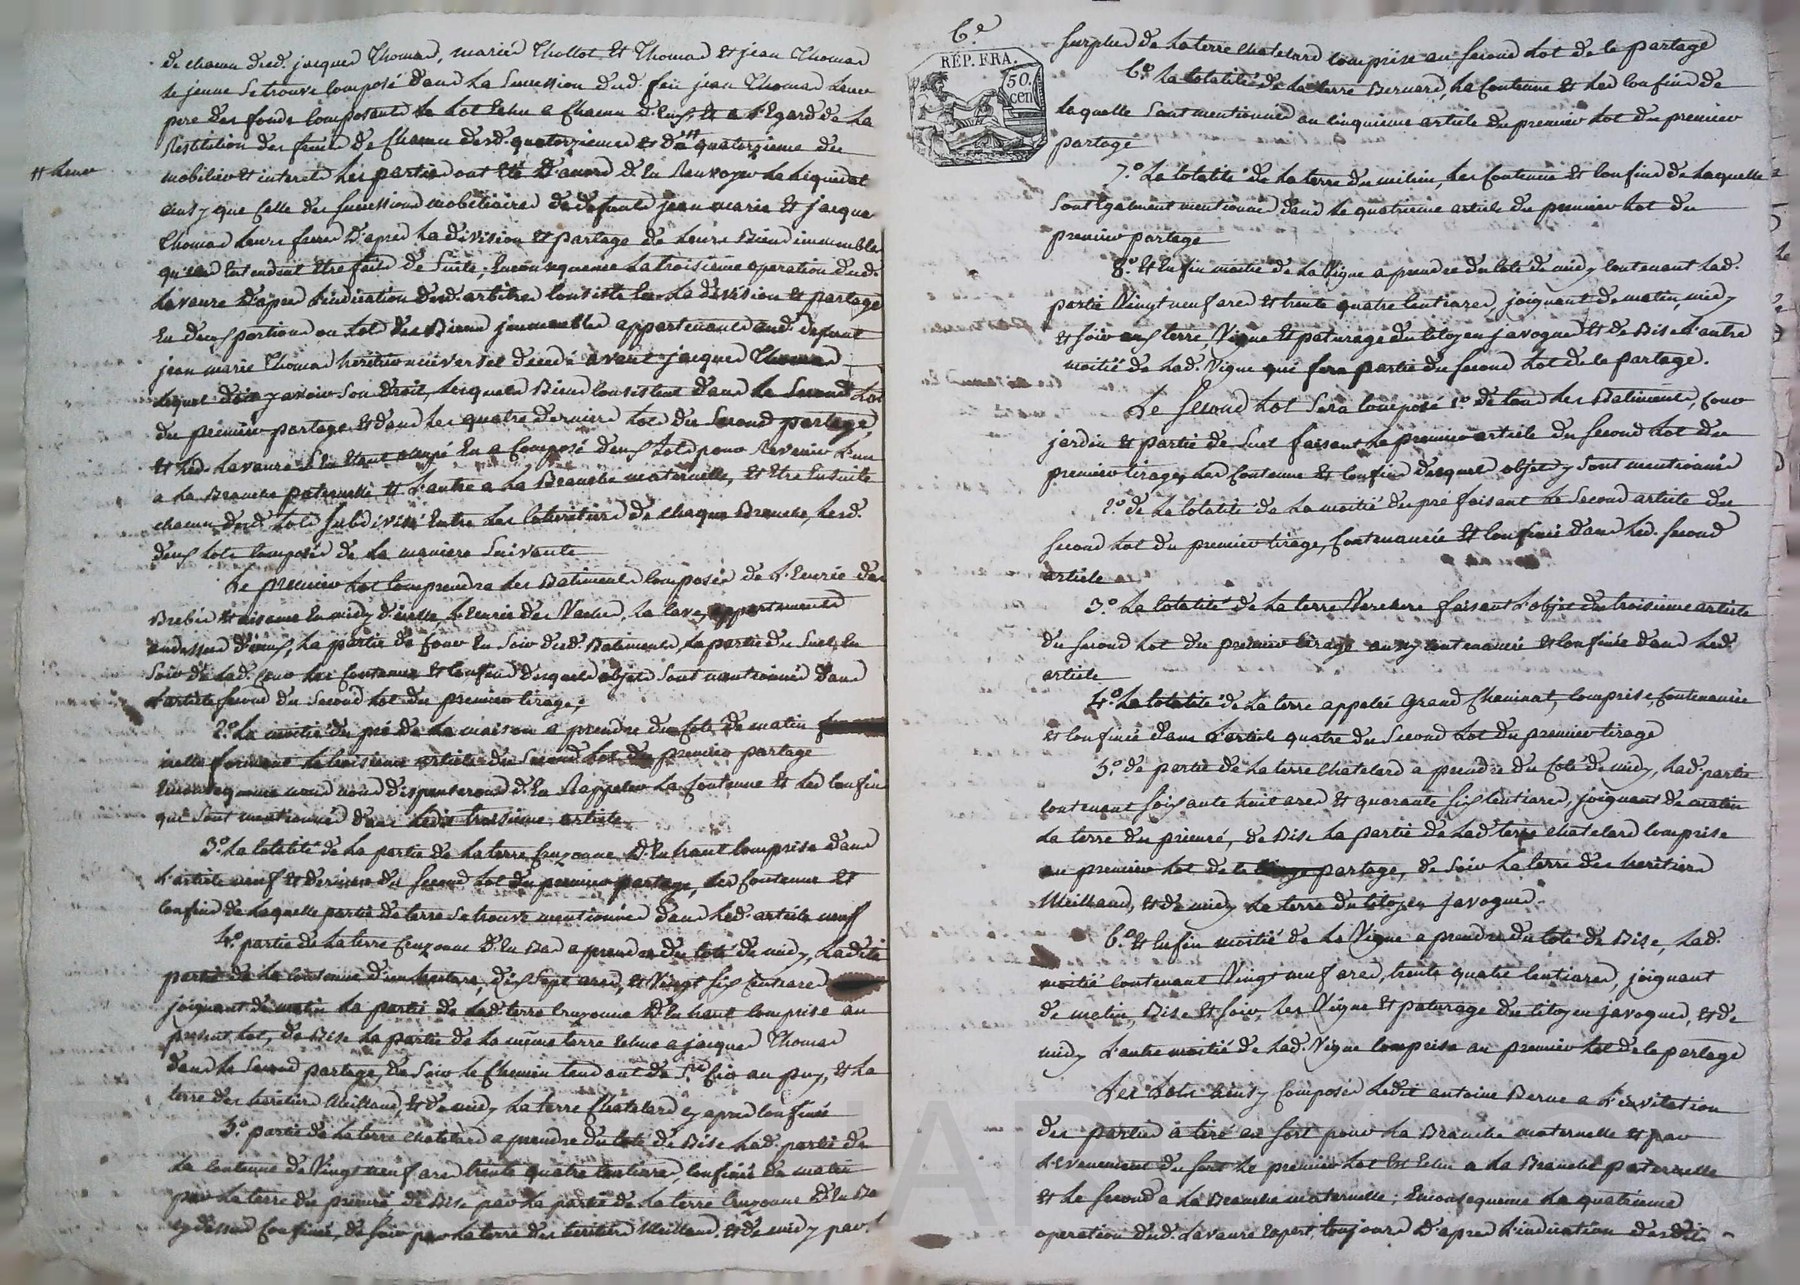 de chacun desd. jacques Thomas, mariée Thollot et Thomas et jean Thomas
le jeune se trouve composé dans la succession dud. feu jean Thomas leur
pere des fonds composants le lot echu a chacun d'eux et a l'egard de la
Restitution des fruits de chacun desd. quatorzieme et d'# quatorzieme des
# leurs
mobilier et interets les parties ont été d'accord d'en Renvoyer la liquidat
ainsy que celle des successions mobiliaires de defunts jean marie et jacque
Thomas leurs freres d'apres la division et partage de leurs Biens immeubles
qu'ils entendent etre faits de suite; Enconsequence la troisieme operation dud.
Lavaure d'apres l'indication desd. arbitres consiste en la division et partage
En deux portions ou lots des Biens immeubles appartenants aud. defunt
jean marie Thomas heritier universel decedé avant jacques Thomas
lequel doit y avoir son droit, lesquels Biens consistent dans le second lot
du premier partage et dans les quatre derniers lots du second partage,
et led. Lavaure s'en etant occupé en a composé deux lots pour Revenir l'un
a la Branche paternelle et l'autre a la Branche maternelle, et etre Ensuite
chacun desd. lots subdivisé entre les cohéritiers de chaque Branche, lesd.
deux lots composés de la maniere suivante
Le premier lot comprendra les Batiments composés de l'Ecurie des
Brebis et aisance en midy d'icelle, l'ecurie des Vaches, la cave, appartements
audessus d'iceux, la partie de Cour en soir desd. Batiments, la partie du Suel, en
soir de lad. Cour les contenues et confins desquels objets sont mentionnés dans
l'article second du second lot du premier tirage;
2.º La moitié du pré de la maison a prendre du coté de matin
icelle formant le troisieme article du second lot du premier partage
Enconsequence nous nous dispenserons d'en Rappeler la contenue et les confins
qui sont mentionnés dans ledit troisieme article
3.º La totalité de la partie de la terre Cruzonne d'En haut comprise dans
l'article neuf et dernier du second lot du premier partage, les contenue et
confins de laquelle partie de terre se trouve mentionnés dans led. article neuf
4.º partie de la terre Cruzonne d'En Bas a prendre du coté de midy, ladite
partie de la contenue d'un hectare, dix sept ares, et Vingt six centiares
joignant de matin la partie de lad. terre Cruzonne d'En haut comprise au
present lot, de Bise la partie de la même terre echue a jacques Thomas
dans le second partage, de soir le chemin tendant de S.t Cir au puy, et la
terre des heritiers Meilland, et de midy la terre Chatelard cy apres confinée
5.º partie de la terre chatelard a prendre du coté de Bise lad. partie de
la contenue de Vingt neuf ares trente quatre centiares, confinée de matin
par la terre du prieuré de Bise par la partie de la terre Cruzonne d'En Bas
cy dessus Confinée, de soir par la terre des heritiers Meilland, et de midy par l
6.e
REP. FRA.
50.
cen
surplus de la terre chatelard comprise au second lot de ce partage
6.º La totalité de la terre Bernard, la contenue et les confins de
laquelle sont mentionnés au cinquieme article du premier lot du premier
partage
7.º La totalité de la terre du milieu, les contenue et confins de laquelle
sont egalement mentionnés dans le quatrieme article du premier lot du
premier partage
8.º et Enfin moitié de la Vigne a prendre du coté de midy contenant lad.
partie Vingt neuf ares et trente quatre centiares, joignant de matin, midy
et soir aux terre Vigne et paturage du citoyen javogues et de Bise l'autre
moitié de lad. Vigne qui fera partie du second lot de ce partage.
Le second lot sera composé 1.º de tous les Batiments, Cour
jardin et partie de suel faisant le premier article du second lot du
premier tirage, les contenue et confins desquels objets y sont mentionnés
2.º de la totalité de la moitié du pré faisant le second article du
second lot du premier tirage, contenancée et confinée dans led. second
article
3.º La totalité de la terre Verchere faisant l'objet du troisieme article
du second lot du premier tirage aussy contenancée et confinée dans led.
article
4.º La totalité de la terre appelée grand Cheminat, comprise, contenancée
et confinée dans l'article quatre du second lot du premier tirage
5.º de partie de la terre Chatelard a prendre du coté de midy, lad. partie
contenant soixante huit ares et quarante six centiares, joignant de matin
la terre du prieuré, de Bise la partie de lad. terre chatelard comprise
au premier lot de ce partage, de soir la terre des heritiers
Meilland, et de midy la terre du citoyen javogues.
6.º et Enfin moitié de la Vigne a prendre du coté de Bise, lad.
moitié contenant Vingt neuf ares, trente quatre centiares, joignant
de matin, Bise et soir, les Vigne et paturage du citoyen javogues, et de
midy l'autre moitié de lad. Vigne comprise au premier lot de ce partage
Les lots ainsy Composés ledit antoine Berne a l'invitation
des parties à tiré au sort pour la Branche maternelle et par
l'evenement du sort le premier lot est echu a la Branche paternelle
et le second a la Branche maternelle; Enconsequence la quatrieme
operation dud. Lavaure Expert, toujours d'apres l'indication desdits